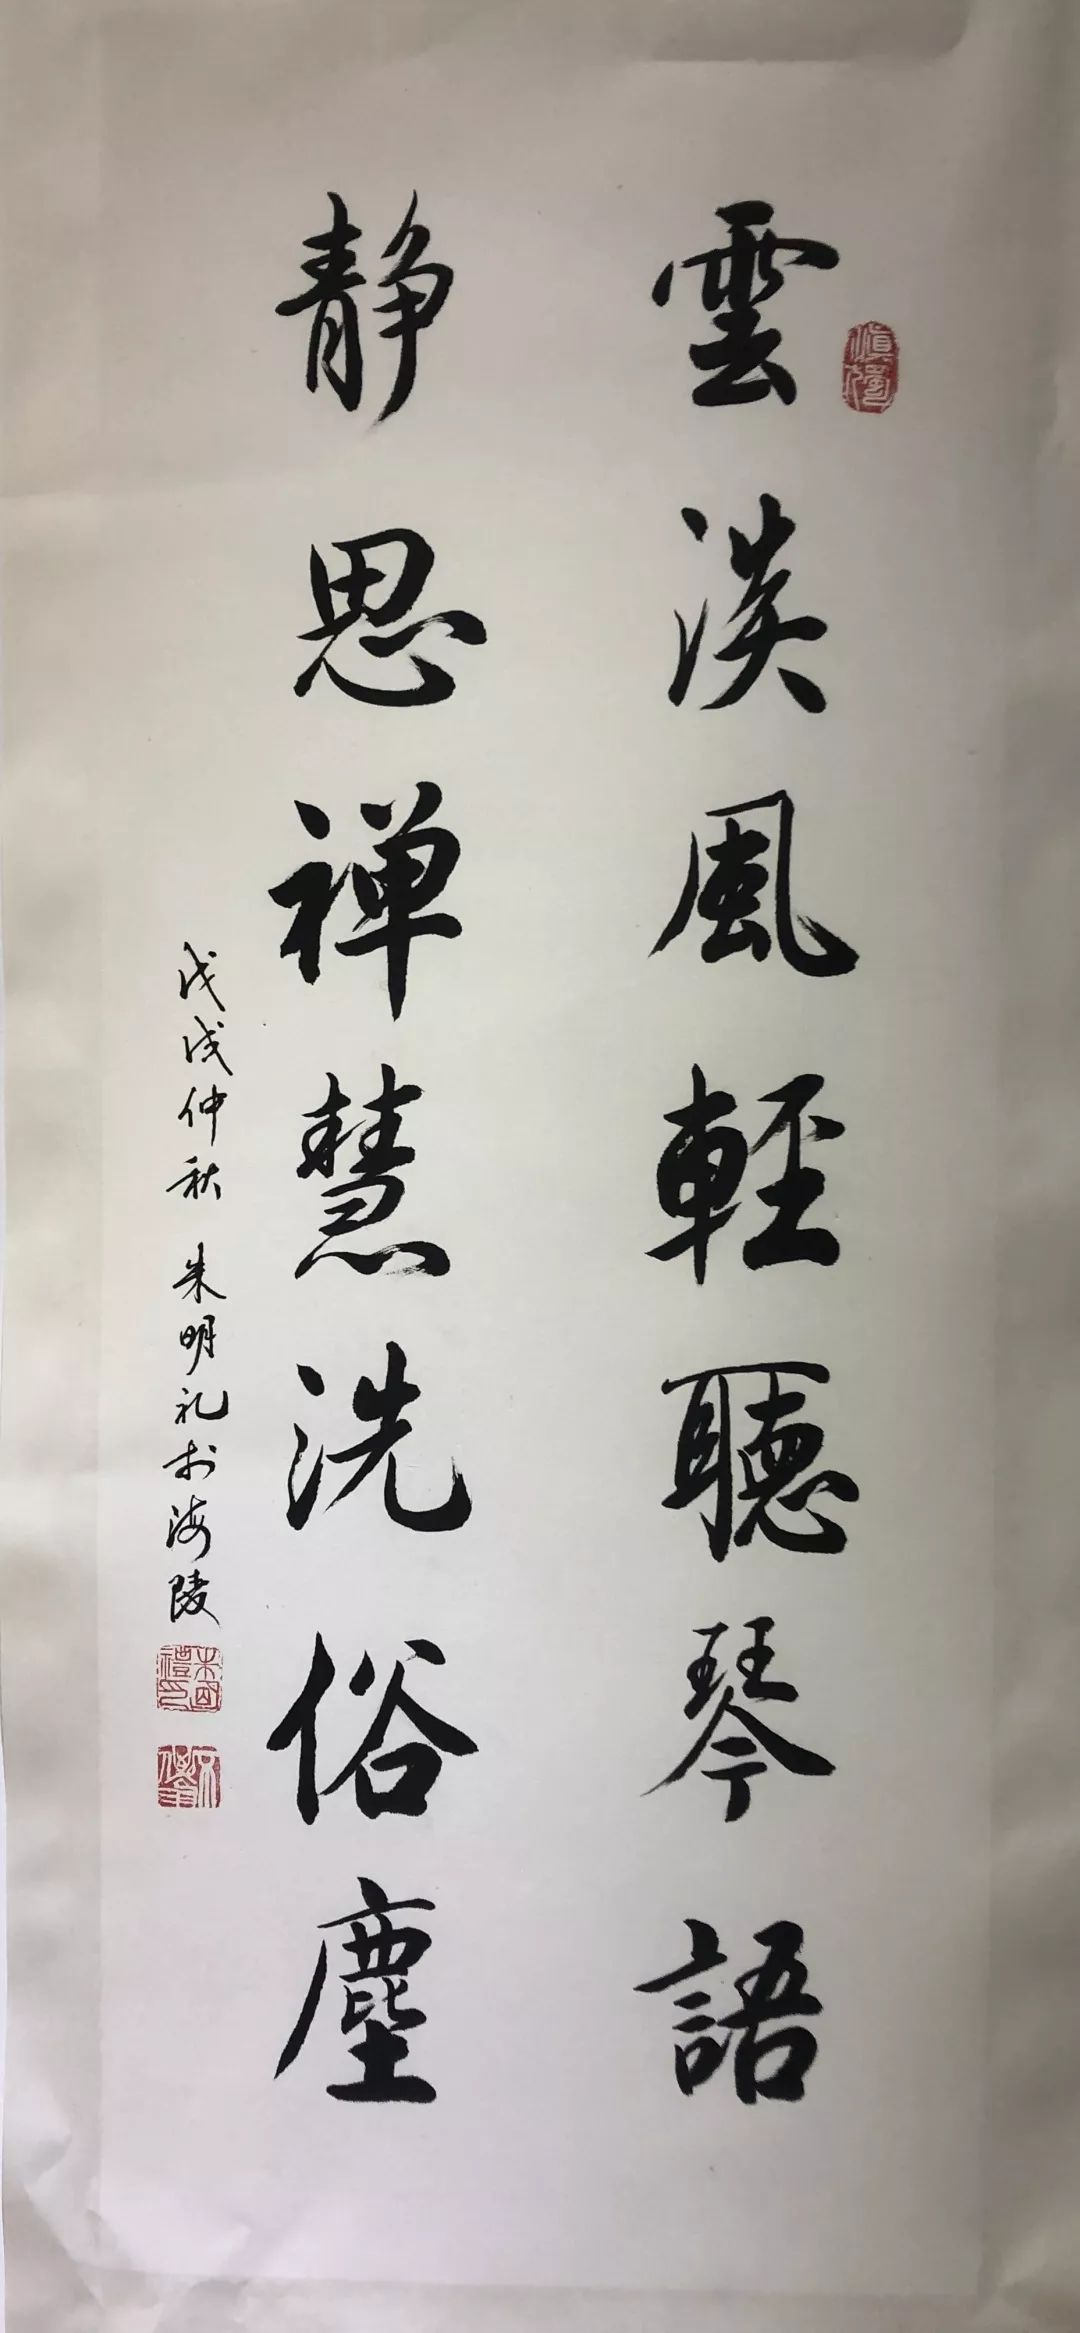 雲淡風輕聽琴語
静思禅慧洗俗塵
戊戌仲秋 朱明礼於海陵